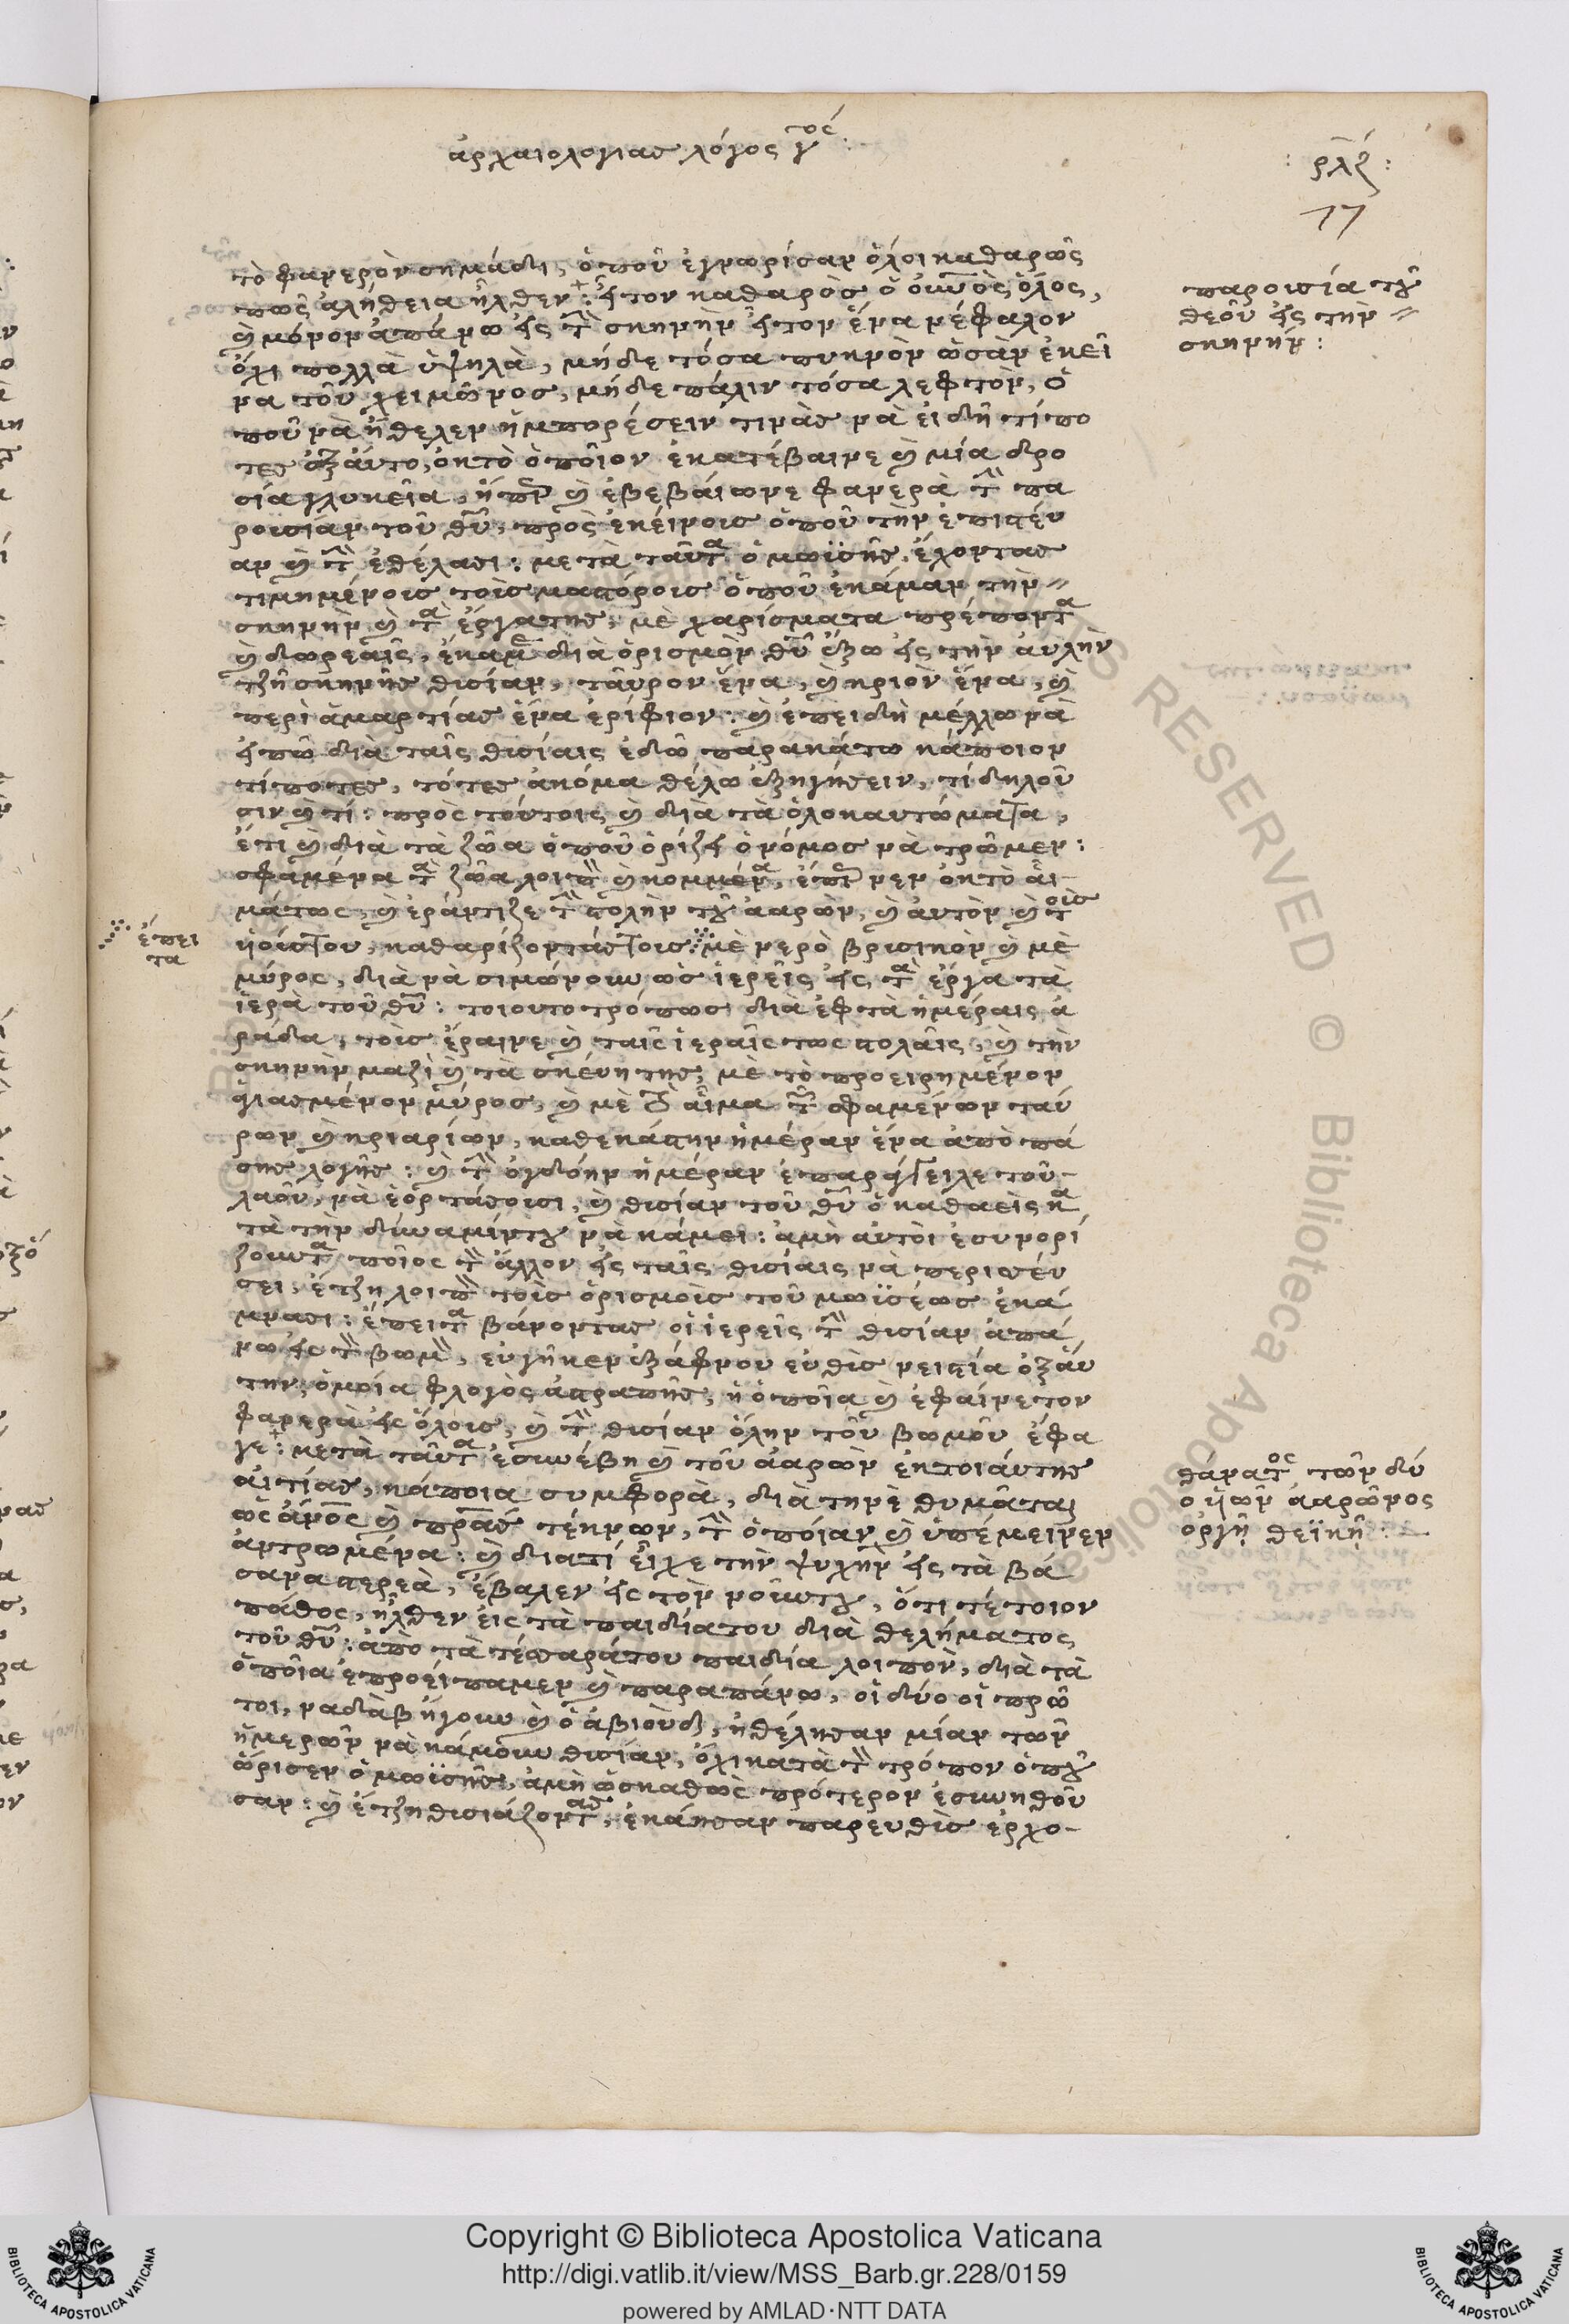 ἀρχαιολογιας λόγος γ^ος :
: ρλζ :
17
τὸ φανερὸν σημάδι, ὁποῦ ἐγνωρίσαν ὅλοι καθαρῶς
πῶς ἀλήθεια ἦλθεν : ἦτον καθαρὸς ὁ οὐνὸς ὅλος,
καὶ μόνον ἀπάνω εἰς τὴ σκηνὴν ἦτον ἕνα νέφαλον
ὄχι πολλὰ ὑψηλὰ, μήδε τόσα πυκνὸν ὡσὰν ἐκεῖ
να τοῦ χειμῶνος, μήδε πάλιν τόσα λεφτὸν, ὁ
ποῦ νὰ ἤθελεν ἠμπορέσειν τινὰς νὰ εἰδῆ τίπο
τες ὀξ αὐτο, ὀκ τὸ ὁποῖον ἐκατέβαινε καὶ μία δρο
σία γλυκεῖα, ἡ ὁποία καὶ ἐβεβάιωνε φανερὰ τὴν πα
ρουσίαν τοῦ θῦ, πρὸς ἐκείνους ὁποῦ τὴν ἐπιστέυ
αν καὶ τὴν ἐθέλασι : μετὰ ταῦτα ὁ μωϋσῆς, ἔχοντας
τιμημένους τοὺς μαστόρους ὁποῦ ἐκάμαν τὴν
σκηνὴν καὶ τὰ ἐργατης, μὲ χαρίσματα πρέποντα
καὶ δωρεαῖς, ἔκαμε διὰ ὁρισμὸν θῦ ἔξω εἰς τὴν ἀυλὴν
τζῆ σκηνῆς θυσίαν, ταῦρον ἕνα, καὶ κριὸν ἕνα, καὶ
περὶ ἁμαρτίας ἕνα ἐρίφιον : καὶ ἐπειδὴ μέλλω νὰ
εἰπῶ διὰ ταῖς θυσίαις ἐδῶ παρακάτω κάποιον
τίποτες, τότες ἀκόμα θέλω ἐξηγήσειν, τί δηλοῦ
σιν καὶ τί : πρὸς τούτοις καὶ διὰ τὰ ὁλοκαυτώματα,
ἔτι καὶ διὰ τὰ ζῶα ὁποῦ ὁρίζει ὁ νόμος νὰ τρῶμεν :
σφαμένα τὰ ζῶα λοιπὸν καὶ κομμένα, ἔπερνεν ὀκ τὸ αἷ-
μάτως, καὶ ἐράντιζε τὴν στολὴν τοῦ ἀαρὼν, καὶ αὐτὸν καὶ τοὺς
ὑιούςτου, καθαρίζοντάςτους μὲ νερὸ βρυσικὸν καὶ μὲ
ἐπει
τα
μύρος, διὰ νὰ σιμώνουν ὡς ἱερεῖς εἰς τὰ ἔργα τὰ
ἱερὰ τοῦ θῦ : τοιουτοτρόπως διὰ ἑφτὰ ἡμέραις ἀ
ράδα, τοὺς ἔραινε καὶ ταῖς ἱεραῖς τως στολαῖς, καὶ τὴν
σκηνὴν μαζὶ καὶ τὰ σκέυη της, μὲ τὸ προειρημένον
ἁγιασμένον μύρος, καὶ μὲ τὸ αἷμα τῶν σφαμένων ταύ
ρων καὶ κριαρίων, καθεκάστην ἡμέραν ἕνα ἀπὸ πά
σης λογῆς : καὶ τὴν ὀγδόην ἡμέραν ἐπαράγγειλε τοῦ
λαοῦ, νὰ ἑορτάσουσι, καὶ θυσίαν τοῦ θῦ ὁ καθαεὶς κα
τὰ τὴν δύναμίντου νὰ κάμει : ἀμὴ αὐτοὶ ἐσυνορί
ζουντα ποῖος τὸν ἄλλον εἰς ταῖς θυσίαις νὰ περισσέυ
σει, ἔτζη λοιπὸν τοὺς ὁρισμοὺς τοῦ μωϋσέως ἐκά
μνασι : ἔπειτα βάνοντας οἱ ἱερεῖς τὴν θυσίαν ἀπά
νω εἰς τὸν βωμὸν, ευγῆκεν ἐξάφνου ευθὺς νειστία ὀξ αὐ
την, ὁμοία φλογὸς ἀστραπῆς, ἡ ὁποῖα καὶ ἐφαίνετον
φανερὰ εἰς ὅλους, καὶ τὴν θυσίαν ὅλην τοῦ βωμοῦ ἔφα
γε : μετὰ ταῦτα ἐσυνέβη καὶ τοῦ ἀαρὼν ἐκ τοιάυτης
αἰτίας, κάποια συμφορὰ, διὰ τηνὲ θυμᾶται
ὡς ἄνος καὶ πρας τέκνων, τὴν ὁποίαν καὶ ὑπέμεινεν
ἀντρωμένα : καὶ διατί εἶχε τὴν ψυχὴν εἰς τὰ βά
σανα στερεὰ, ἔβαλεν εἰς τὸν νοῦντου, ὅτι τέτοιον
πάθος, ἦλθεν εἰς τὰ παιδιάτου διὰ θελήματος
τοῦ θῦ : ἀπὸ τὰ τέσσαράτου παιδία λοιπὸν, διὰ τὰ
ὁποῖα ἐπροείπαμεν καὶ παραπάνω, οἱ δύο οἱ πρῶ
τοι, ναδὰβ ἤγουν καὶ ὁ ἀβιοὺδ, ἠθέλησαν μίαν τῶν
ἡμερῶν νὰ κάμουν θυσίαν, ὄχι κατὰ τὸν τρόπον ὁποῦ
ὥρισεν ὁ μωϋσῆς, ἀμὴ ὡς καθὼς πρότερον ἐσυνηθοῦ
σαν : καὶ ἔτζη θυσιάζοντας, ἐκάησαν παρευθὺς ἐρχο-
παρουσία τοῦ
θεοῦ εἰς τὴν
σκηνήν :
θάνατος τῶν δύ
ο ὑιῶν ἀαρῶνος
ὀργῆ θεϊκῆ :
Copyright © Biblioteca Apostolica Vaticana
http://digi.vatlib.it/view/MSS_Barb.gr.228/0159
powered by AMLAD·NTT DATA